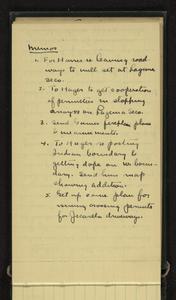 Memos
1. For Harris re leaving road-
ways to mill set at Laguna
Seco.
2. To Hager to get cooperation
of permittees in stopping
arroyos on Laguna Seco.
3. Send Ennis fireplan plans
& measurements.
4. To Hager re posting
Indian boundary &
getting dope on
dary. Send him map
showing addition.
5. Get up some plan for
crossing permits
for Jicarilla driveway.